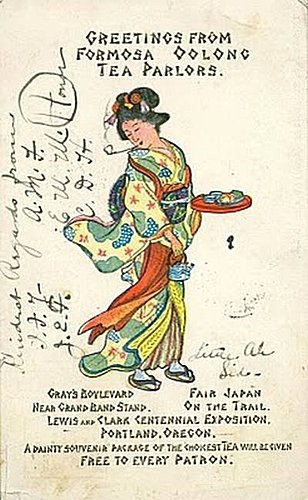 GREETINGS FROM
FORMOSA OOLONG
TEA PARLORS.
Kindest Regards from
A. M. F.
E. W. W.
C. D. H.
J. E. F.
GRAY'S BOULEVARD
NEAR GRAND BAND STAND.
FAIR JAPAN
ON THE TRAIL.
LEWIS AND CLARK CENTENNIAL EXPOSITION,
PORTLAND, OREGON.
A DAINTY SOUVENIR PACKAGE OF THE CHOICEST TEA WILL BE GIVEN
FREE TO EVERY PATRON.